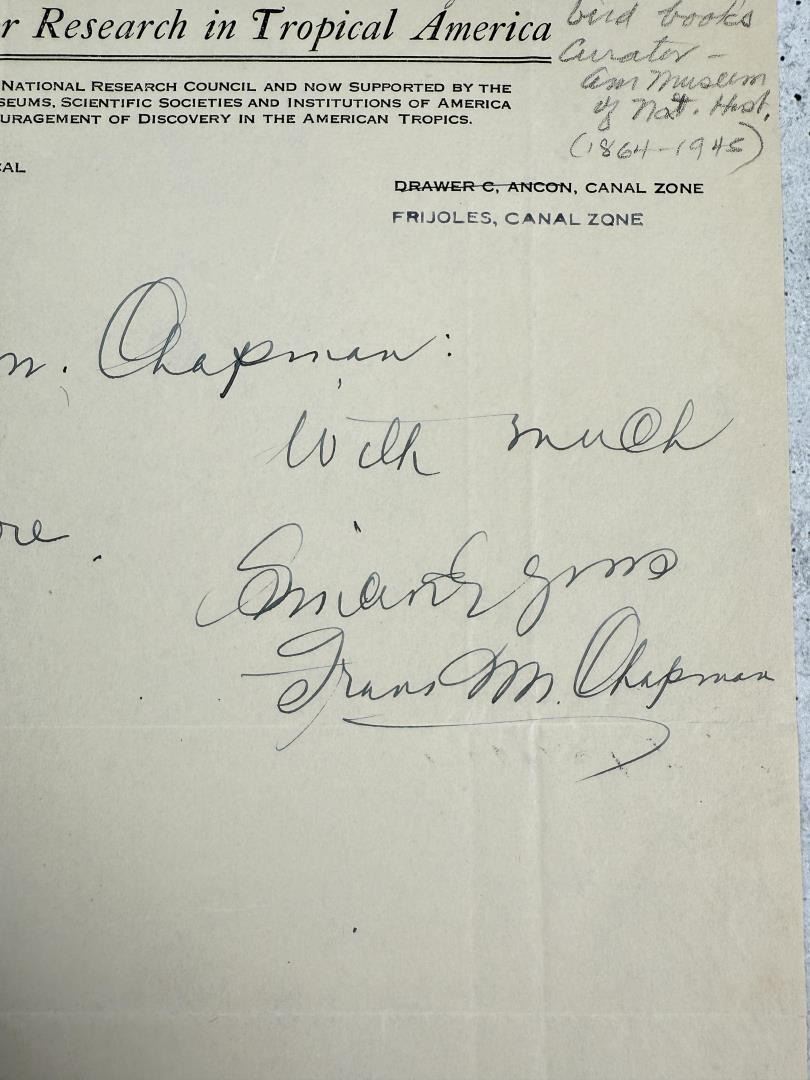 r Research in Tropical America
NATIONAL RESEARCH COUNCIL AND NOW SUPPORTED BY THE
SEUMS, SCIENTIFIC SOCIETIES AND INSTITUTIONS OF AMERICA
URAGEMENT OF DISCOVERY IN THE AMERICAN TROPICS.
bird books
Curator –
Am Museum
of Nat. Hist.
(1864–1945)
CAL
DRAWER C, ANCON, CANAL ZONE
FRIJOLES, CANAL ZONE
m. Chapman:
With much
ore.
Frank M. Chapman